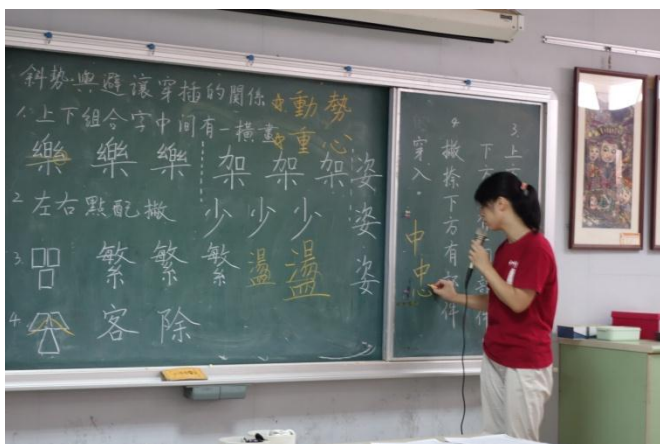 斜勢與避讓穿插的關係 ☆動勢
1.上下組合字中间有一橫畫 ☆重心
樂 樂 樂 架 架 架 姿
2 左右點配撇 少 少 少 姿
3. 繁 繁 繁 盪 盪 姿
4. 客 除
3.上
下方
4 撇捺下方有 件
穿入。
中中心